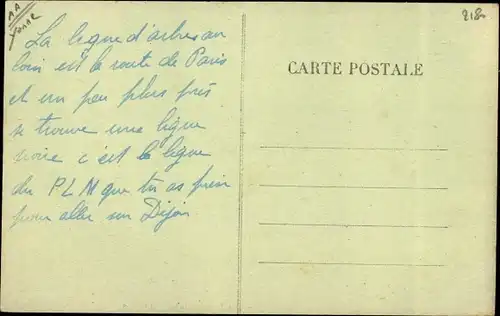 AA
Yonne
2180
La ligne d'arbres au
loin est la route de Paris
et un peu plus près
se trouve une ligne
noire c'est la ligne
du PLM que tu as pris
pour aller sur Dijon
CARTE POSTALE